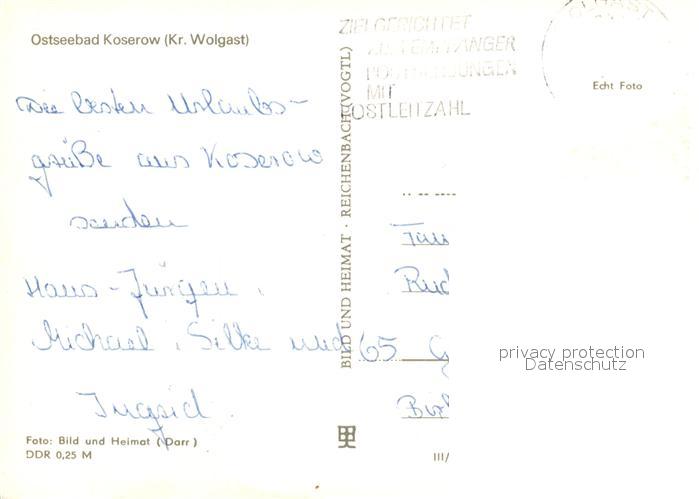 Ostseebad Koserow (Kr. Wolgast)
Die besten Urlaubs-
grüße aus Koserow
senden
Hans-Jürgen,
Michael, Silke und
Ingrid.
Foto: Bild und Heimat (Darr)
DDR 0,25 M
BILD UND HEIMAT · REICHENBACH (VOGTL)
ZIELGERICHTET
ZUM EMPFÄNGER
POSTSENDUNGEN
MIT
POSTLEITZAHL
Echt Foto
65 G
III/
privacy protection
Datenschutz